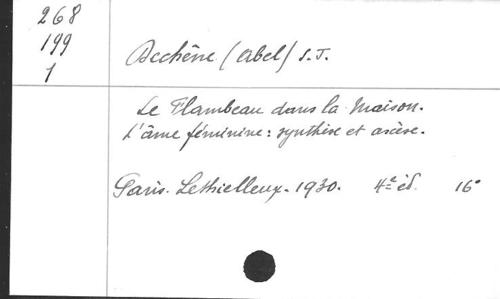 268
199
1
Dechêne (Abel) S.J.
Le Flambeau dans la Maison.
L'âme féminine: synthèse et ascèse.
Paris. Lethielleux. 1930. 4e éd. 16°